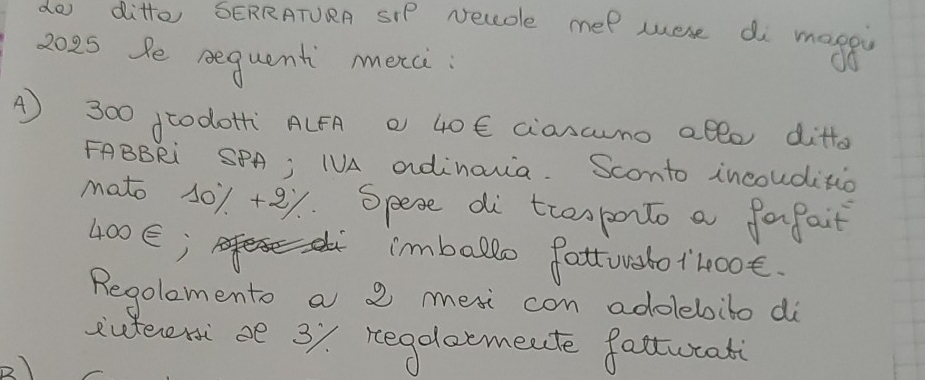 La ditta SERRATURA srl vende nel mese di maggio
2025 le seguenti merci:
A) 300 prodotti ALFA a 40€ ciascuno alla ditta
FABBRI SPA; IVA ordinaria. Sconto incondizio
nato 10% +2%. Spese di trasporto a forfait
400€; spese di imballo fatturato 1'400€.
Regolamento a 2 mesi con addebito di
interessi al 3% regolarmente fatturati
B)